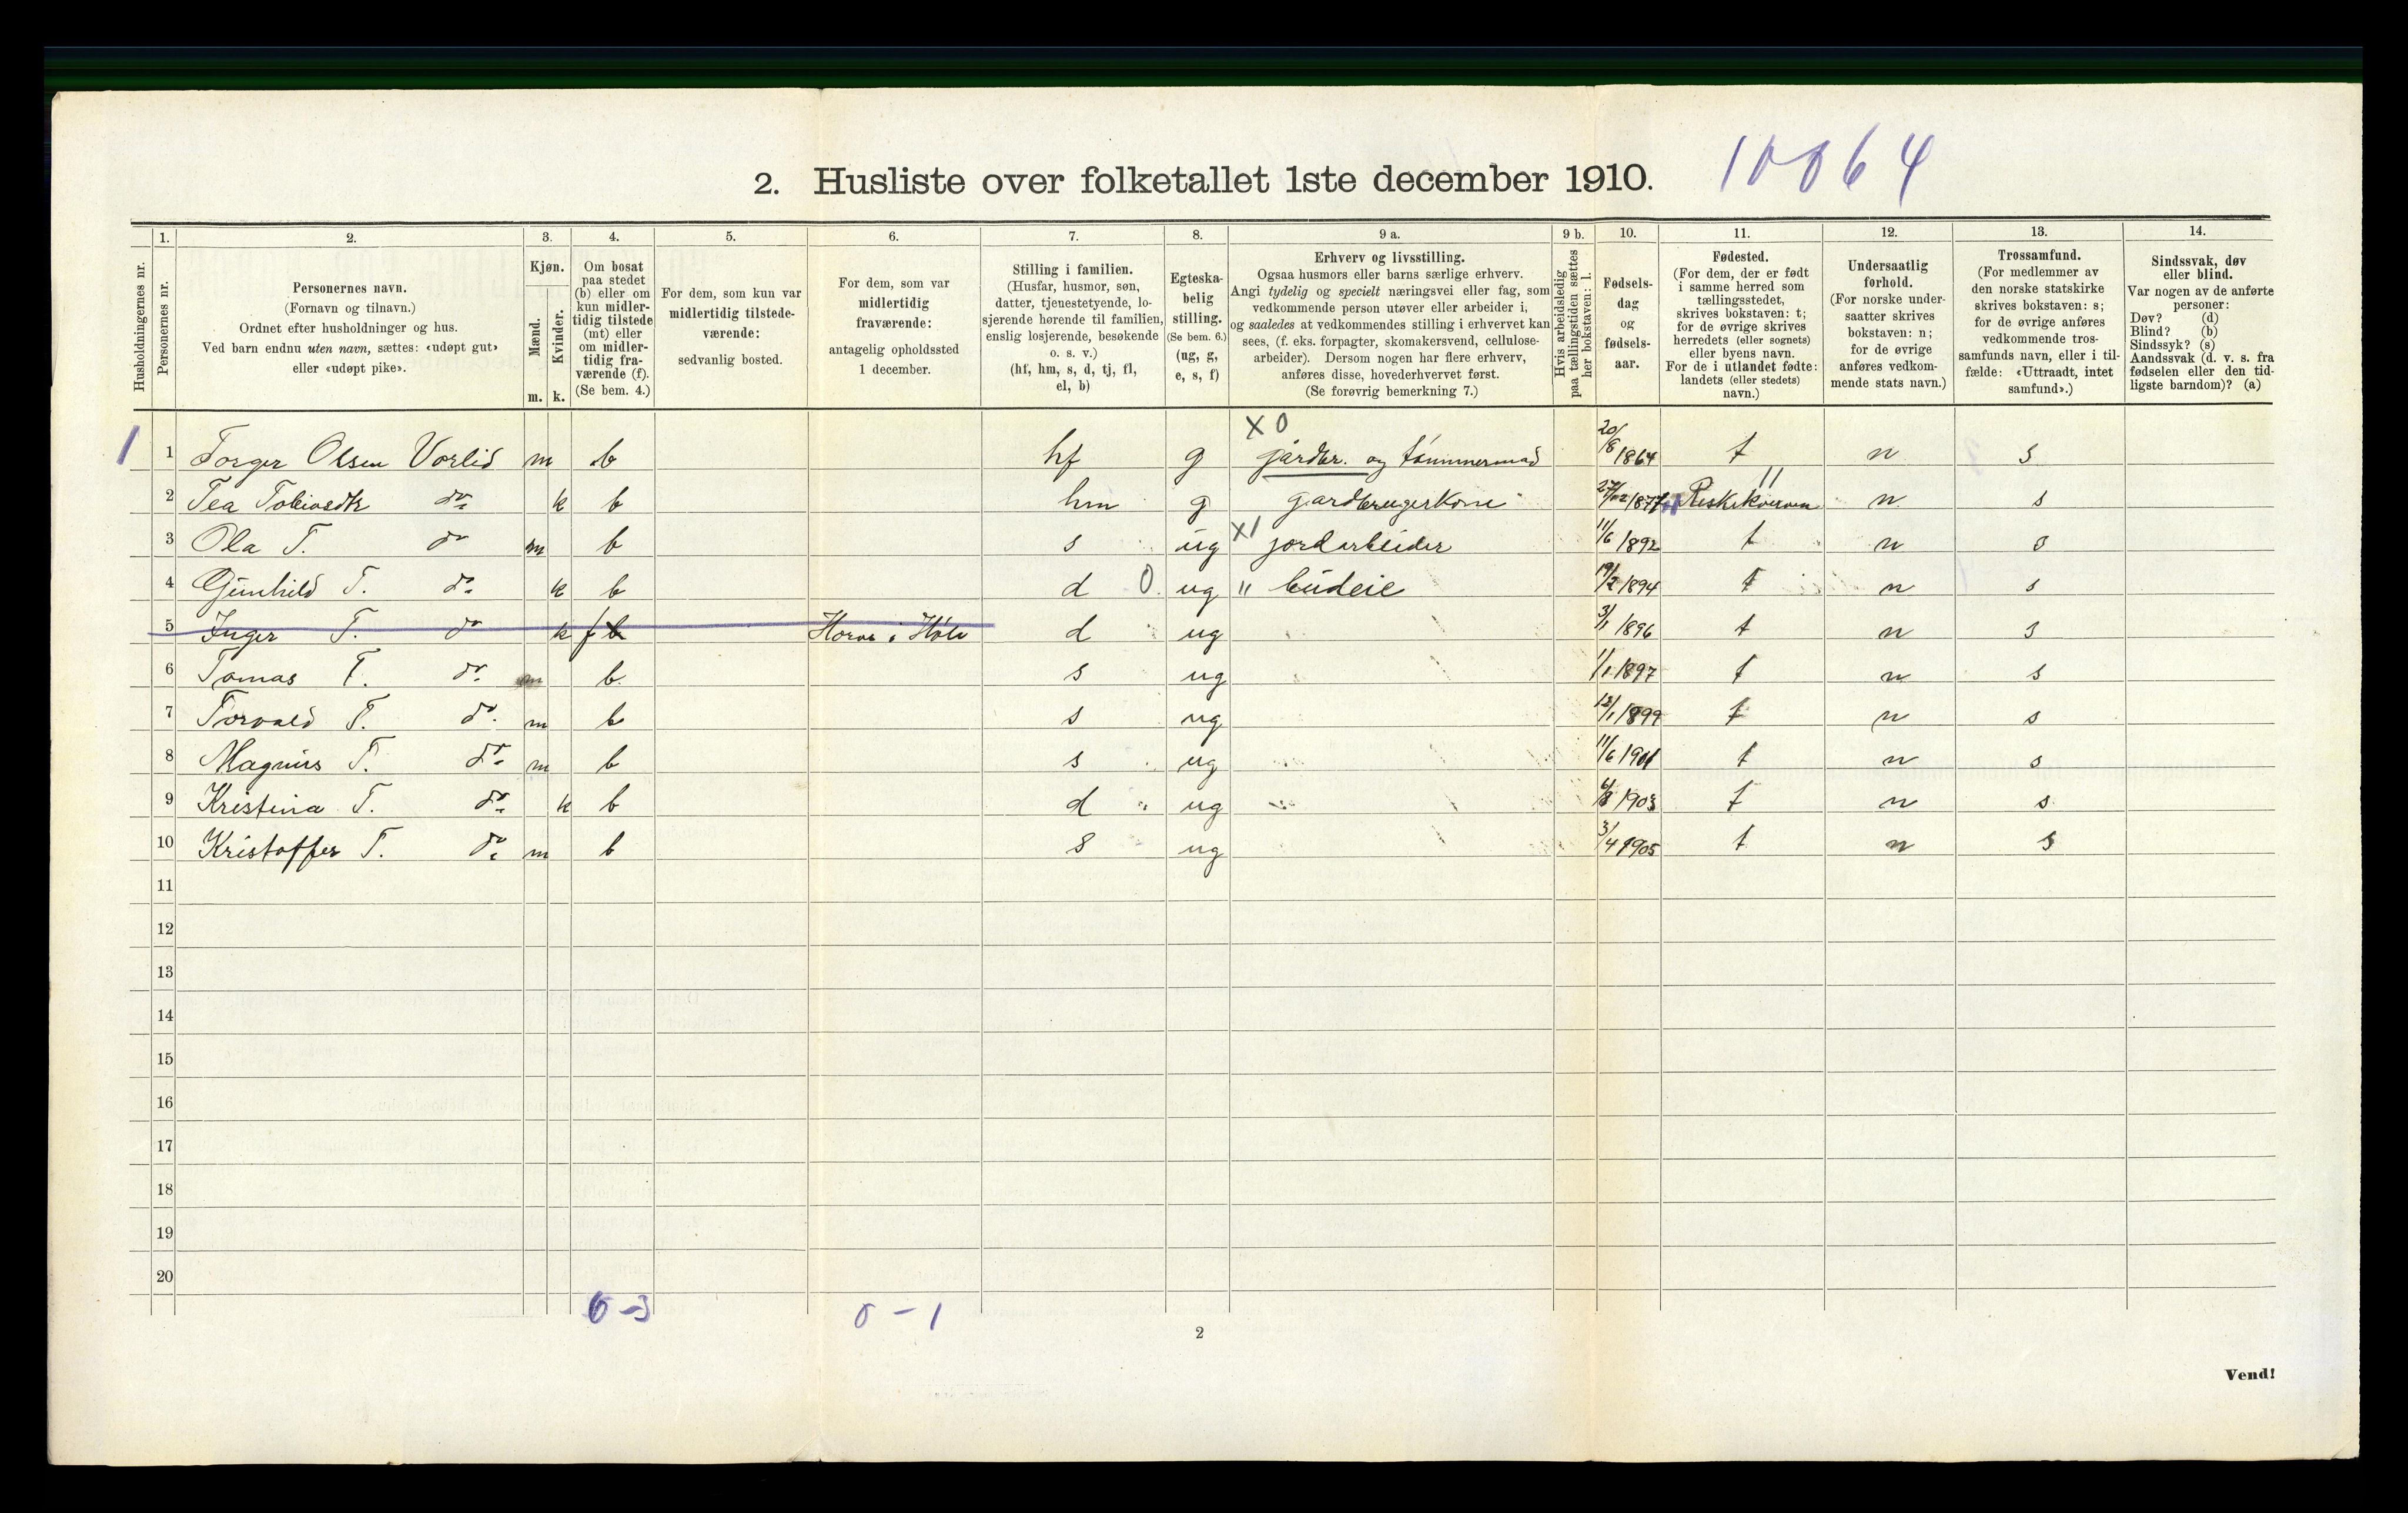 2. Husliste over folketallet 1ste december 1910. 10064
1. 2. 3. 4. 5. 6. 7. 8. 9 a. 9 b. 10. 11. 12. 13. 14.
Husholdningernes nr.
Personernes nr.
Personernes navn.
(Fornavn og tilnavn.)
Ordnet efter husholdninger og hus.
Ved barn endnu uten navn, sættes: «udøpt gut»
eller «udøpt pike».
Kjøn.
Mænd.
Kvinder.
m. k.
Om bosat
paa stedet
(b) eller om
kun midler-
tidig tilstede
(mt) eller
om midler-
tidig fra-
værende (f).
(Se bem. 4.)
For dem, som kun var
midlertidig tilstede-
værende:
sedvanlig bosted.
For dem, som var
midlertidig
fraværende:
antagelig opholdssted
1 december.
Stilling i familien.
(Husfar, husmor, søn,
datter, tjenestetyende, lo-
sjerende hørende til familien,
enslig losjerende, besøkende
o. s. v.)
(hf, hm, s, d, tj, fl,
el, b)
Egteska-
belig
stilling.
(Se bem. 6.)
(ug, g,
e, s, f)
Erhverv og livsstilling.
Ogsaa husmors eller barns særlige erhverv.
Angi tydelig og specielt næringsvei eller fag, som
vedkommende person utøver eller arbeider i,
og saaledes at vedkommendes stilling i erhvervet kan
sees, (f. eks. forpagter, skomakersvend, cellulose-
arbeider). Dersom nogen har flere erhverv,
anføres disse, hovederhvervet først.
(Se forøvrig bemerkning 7.)
Hvis arbeidsledig
paa tællingstiden sættes
her bokstaven: l.
Fødsels-
dag
og
fødsels-
aar.
Fødested.
(For dem, der er født
i samme herred som
tællingsstedet,
skrives bokstaven: t;
for de øvrige skrives
herredets (eller sognets)
eller byens navn.
For de i utlandet fødte:
landets (eller stedets)
navn.)
Undersaatlig
forhold.
(For norske under-
saatter skrives
bokstaven: n;
for de øvrige
anføres vedkom-
mende stats navn.)
Trossamfund.
(For medlemmer av
den norske statskirke
skrives bokstaven: s;
for de øvrige anføres
vedkommende tros-
samfunds navn, eller i til-
fælde: «Uttraadt, intet
samfund».)
Sindssvak, døv
eller blind.
Var nogen av de anførte
personer:
Døv? (d)
Blind? (b)
Sindssyk? (s)
Aandssvak (d. v. s. fra
fødselen eller den tid-
ligste barndom)? (a)
X 0
1 1 Torger Olsen Vorlid m b hf g gårdbr. og tømmermand 20/8 1864 t n s
2 Tea Tobiasdtr do k b hm g gardbrugerkone 27/12 1877 n s
3 Ola T. do m b s ug X1 jordarbeider 11/6 1892 t n s
4 Gunhild T. do k b d 0 ug " budeie 19/2 1894 t n s
5 Inger T. do k f b d ug 3/1 1896 t n s
6 Tomas T. do m b s ug 1/1 1897 t n s
7 Torvald T. do m b s ug 12/1 1899 t n s
8 Magnus T. do m b s ug 11/6 1901 t n s
9 Kristina T. do k b d ug 6/8 1903 t n s
10 Kristoffer T. do m b s ug 3/4 1905 t n s
11
12
13
14
15
16
17
18
19
20
6-3 0-1
2
Vend!